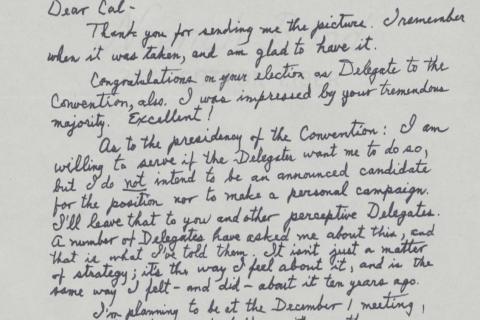 Dear Cal-
Thank you for sending me the picture. I remember
when it was taken, and am glad to have it.
Congratulations on your election as Delegate to the
Convention, also. I was impressed by your tremendous
majority. Excellent!
As to the presidency of the Convention: I am
willing to serve if the Delegates want me to do so,
but I do not intend to be an announced candidate
for the position nor to make a personal campaign.
I'll leave that to you and other perceptive Delegates.
A number of Delegates have asked me about this, and
that is what I've told them. It isn't just a matter
of strategy; it's the way I feel about it, and is the
same way I felt - and did - about it ten years ago.
I'm planning to be at the December 1 meeting,